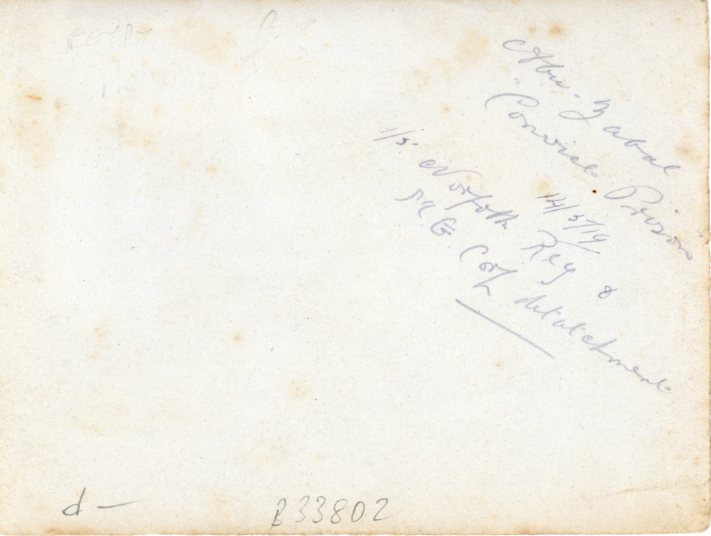 Abu-Zabal
Convict Prison
14/5/19
1/5 Norfolk Reg &
M G Corp detatchment
d-
B33802